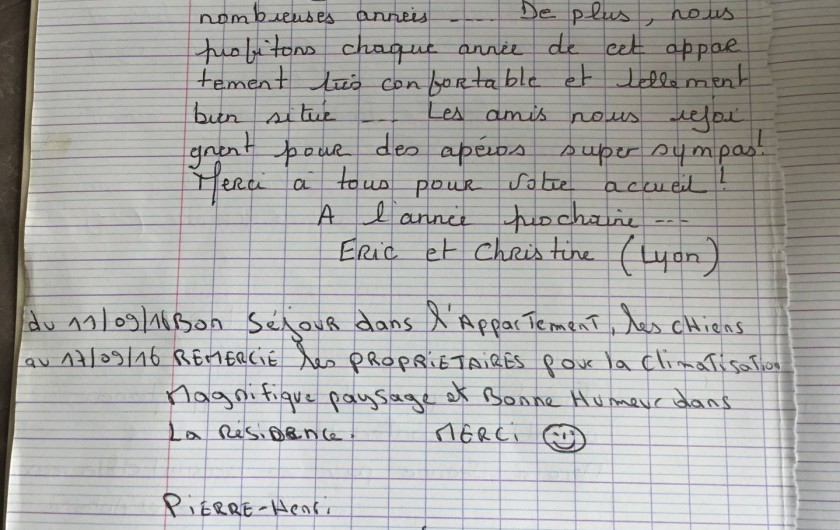 nombreuses années .... De plus, nous
profitons chaque année de cet appar
tement très confortable et tellement
bien situé .... Les amis nous rejoi
gnent pour des apéros super sympas!
Merci à tous pour votre accueil!
A l'année prochaine ---
ERIC et CHRISTINE (Lyon)
du 11/09/16 Bon Séjour dans l'Appartement, les chiens
au 17/09/16 REMERCIE les PROPRIETAIRES pour la Climatisation
Magnifique paysage et Bonne Humeur dans
La Résidence. MERCi ☺
PiERRE-Henri